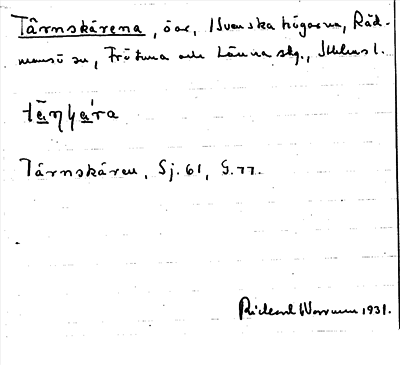 Tärnskären, öar, Svenska högarna, Råd-
mansö sn, Frötuna och Länna skg., Sthlms l.
tä̀ŋʂą́ra
Tärnskären, Sj. 61, G. 77.
Rickard Wormum 1931.